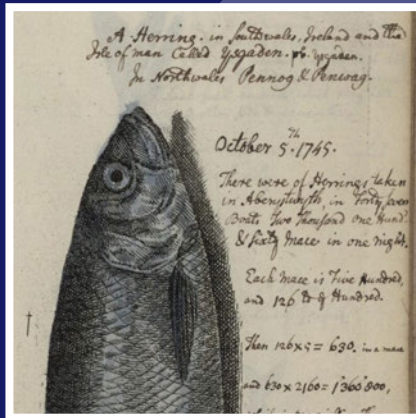 A Herring. in Southwales, Ireland and the
Isle of man Called Ysgaden. pb. ysgaden.
In Northwales Pennog & Penwag.
October 5.th 1745.
There were of Herrings taken
in Aberystwyth, in Forty seven
Boats Two Thousand one Hund.
& Sixty Mace in one night.
Each Mace is Five Hundred,
and 126 to ye Hundred.
Then 126x5 = 630. in a mace
and 630 x 2160 = 1'360'800,